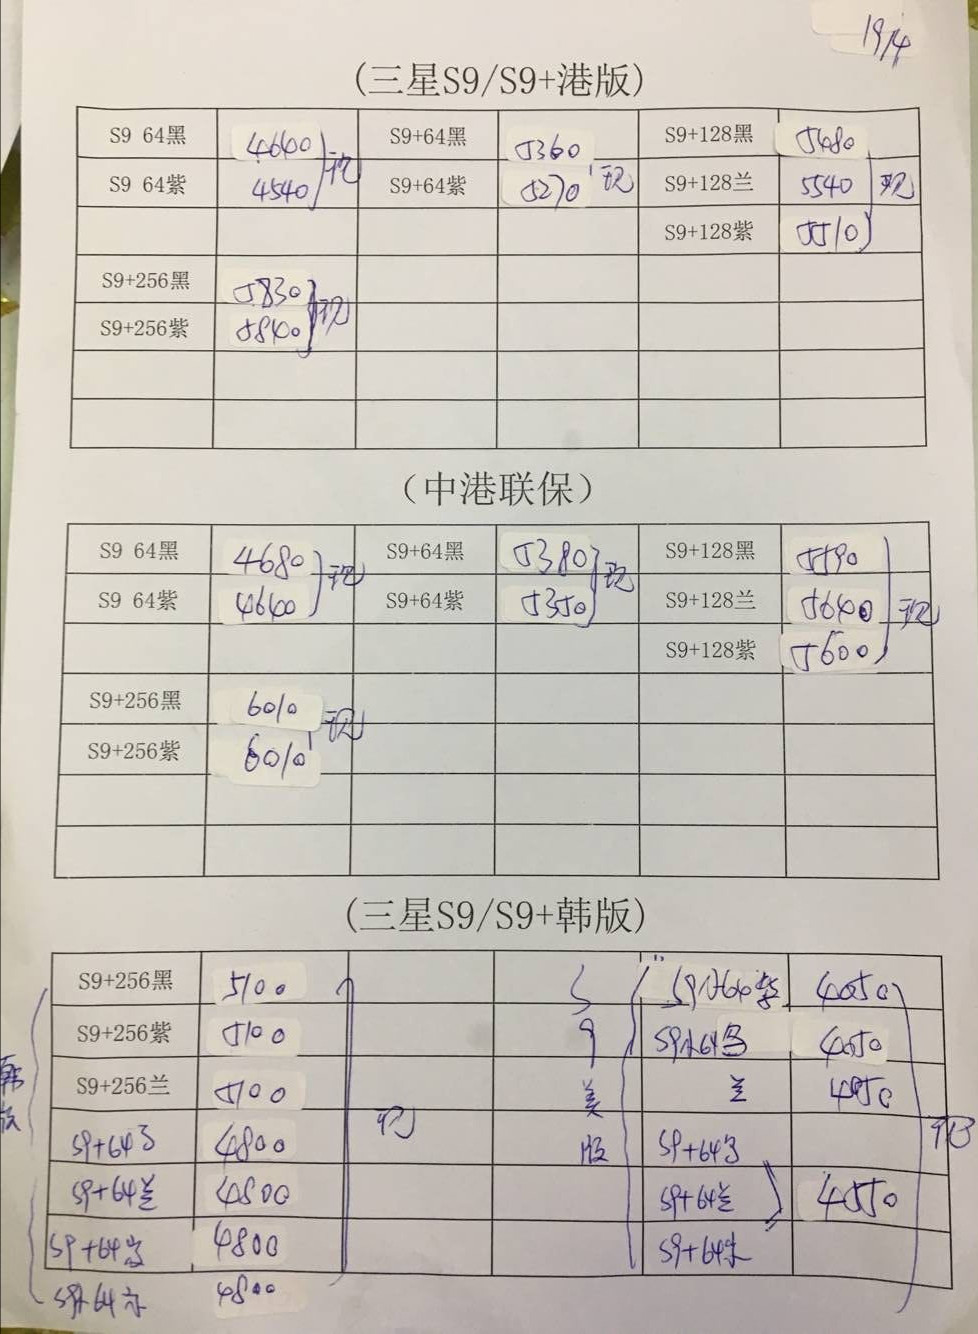 19/4
(三星S9/S9+港版)
S9 64黑 4600 S9+64黑 5360 S9+128黑 5480
S9 64紫 4540 现 S9+64紫 5270 现 S9+128兰 5540 现
S9+128紫 5510
S9+256黑 5830
S9+256紫 5840 现
(中港联保)
S9 64黑 4680 S9+64黑 5380 S9+128黑 5590
S9 64紫 4640 现 S9+64紫 5350 现 S9+128兰 5640 现
S9+128紫 5600
S9+256黑 6010 现
S9+256紫 6010
(三星S9/S9+韩版)
S9+256黑 5100 S 64紫
S9+256紫 5100 9
S9+256兰 5100 美 兰
韩版 S9+64 4800 现 版 S9+64 现
S9+64兰 4800 S9+64兰
S9+64 4800 S9+64
4800